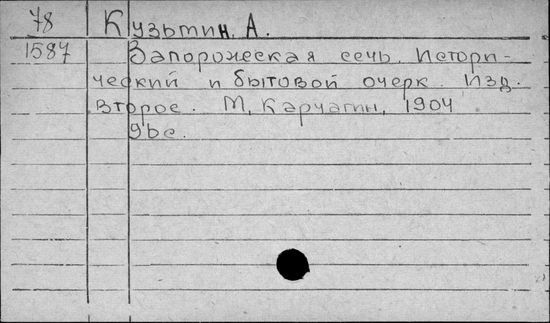 78 Кузьмин. А.
1587 Запорожская сечь. Истори-
ческий и бытовой очерк. Изд.
второе. М, Карчагин, 1904
96с.